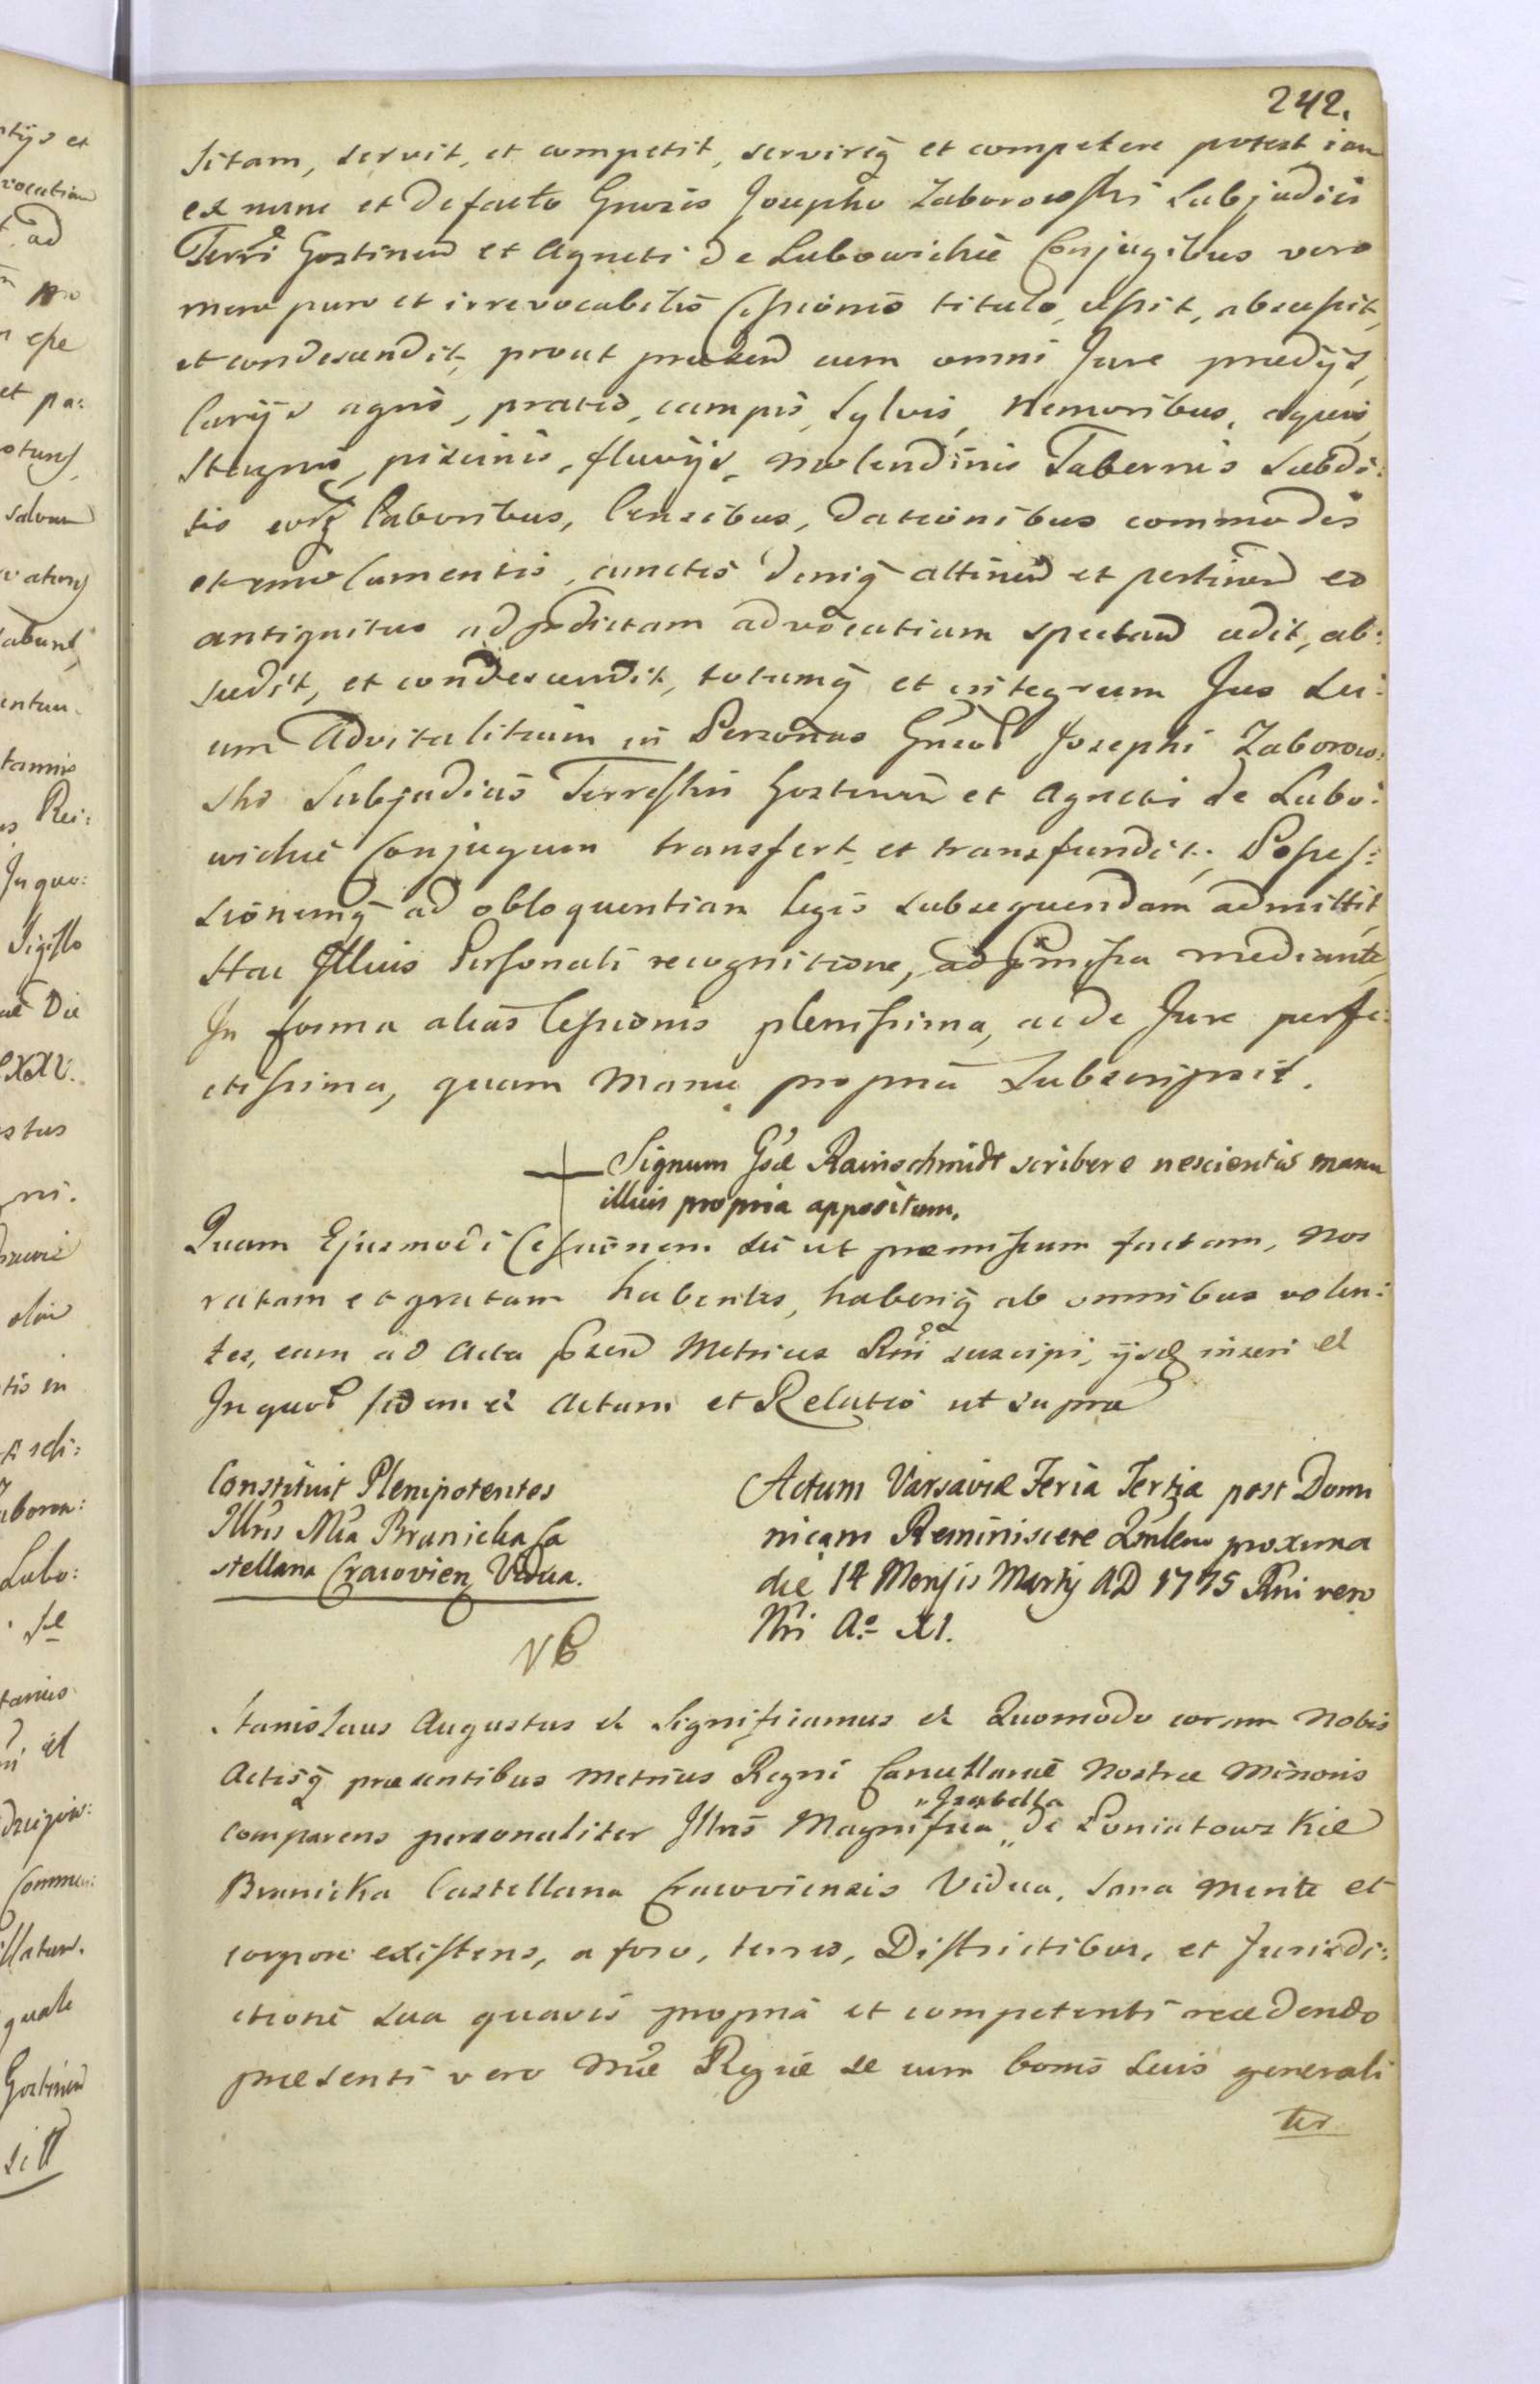 242.
sitam, servit, et competit, servireq̃ et competere potest iam
ex nunc et defacto Gnosis Josepho Zaborowski Subjudici
Terri Gostinen et Agneti de Lubowickie Conjugibus vero
mero puro et irrevocabilis Cessionis titulo, cessit, abscessit,
et condescendit, prout praesen cum omni Jure praedijs,
larijs agris, pratis, campis, Sylvis, Nemoribus, aquis,
Stagnis, piscinis, fluvijs, molendinis Tabernis Subdi:
tis eorq̃ laboribus, Censibus, dationibus commodis
et emolumentis, cunctis deniq̃ attinen et pertinen ex
antiquitus ad p̃dictam advocatiam spectan cedit, ab:
scedit, et condescendit, totumq̃ et integrum Jus Su:
um Advitalitium in Personas Gneor Josephi Zaborow:
ski Subjudicis Terrestris Gostinen et Agnetis de Lubo:
wickie Conjugum transfert et transfundit, Posses:
sionemq̃ ad obloquentiam legis subsequendam admittit,
Hac Illius Personali recognitione, ad p̃missa mediante,
In forma alias Cessionis plenissima, ac de Jure perfe:
ctissima, quam Manu propria Subscripsit.
Signum Gsae Rainschmidt scribere nescientis manu
illius propria appositum.
Quam Ejusmodi Cessionem sic ut praemissum factam, Nos
ratam et gratam habentes, haberiq̃ ab omnibus volen:
tes, eam ad Acta p̃sen Metrices Rni suscipi, ijsq̃ inseri et
In quor fidem et Actum et Relatio ut supra
Constituit Plenipotentes
Illris Mca Branicka Ca
stellana Cracovien Vidua.
NB
Actum Varsaviae Feria Tertia post Domi
nicam Reminiscere Qdrlem proxima
die 14 Mensis Martij AD 1775 Rni vero
Nri Ao XI.
Stanislaus Augustus et Significamus et Quomodo coram Nobis
Actisq̃ praesentibus Metrices Regni Cancellariae Nostrae Minoris
comparens personaliter Illris Magnifica „Izabella„ de Poniatowskie
Branicka Castellana Cracoviensis Vidua, sana mente et
corpore existens, a foro, terris, Districtibus, et Jurisdi:
ctione sua quavis propria et competenti recedendo
praesenti vero Mtrae Regiae se cum bonis suis generali
ter